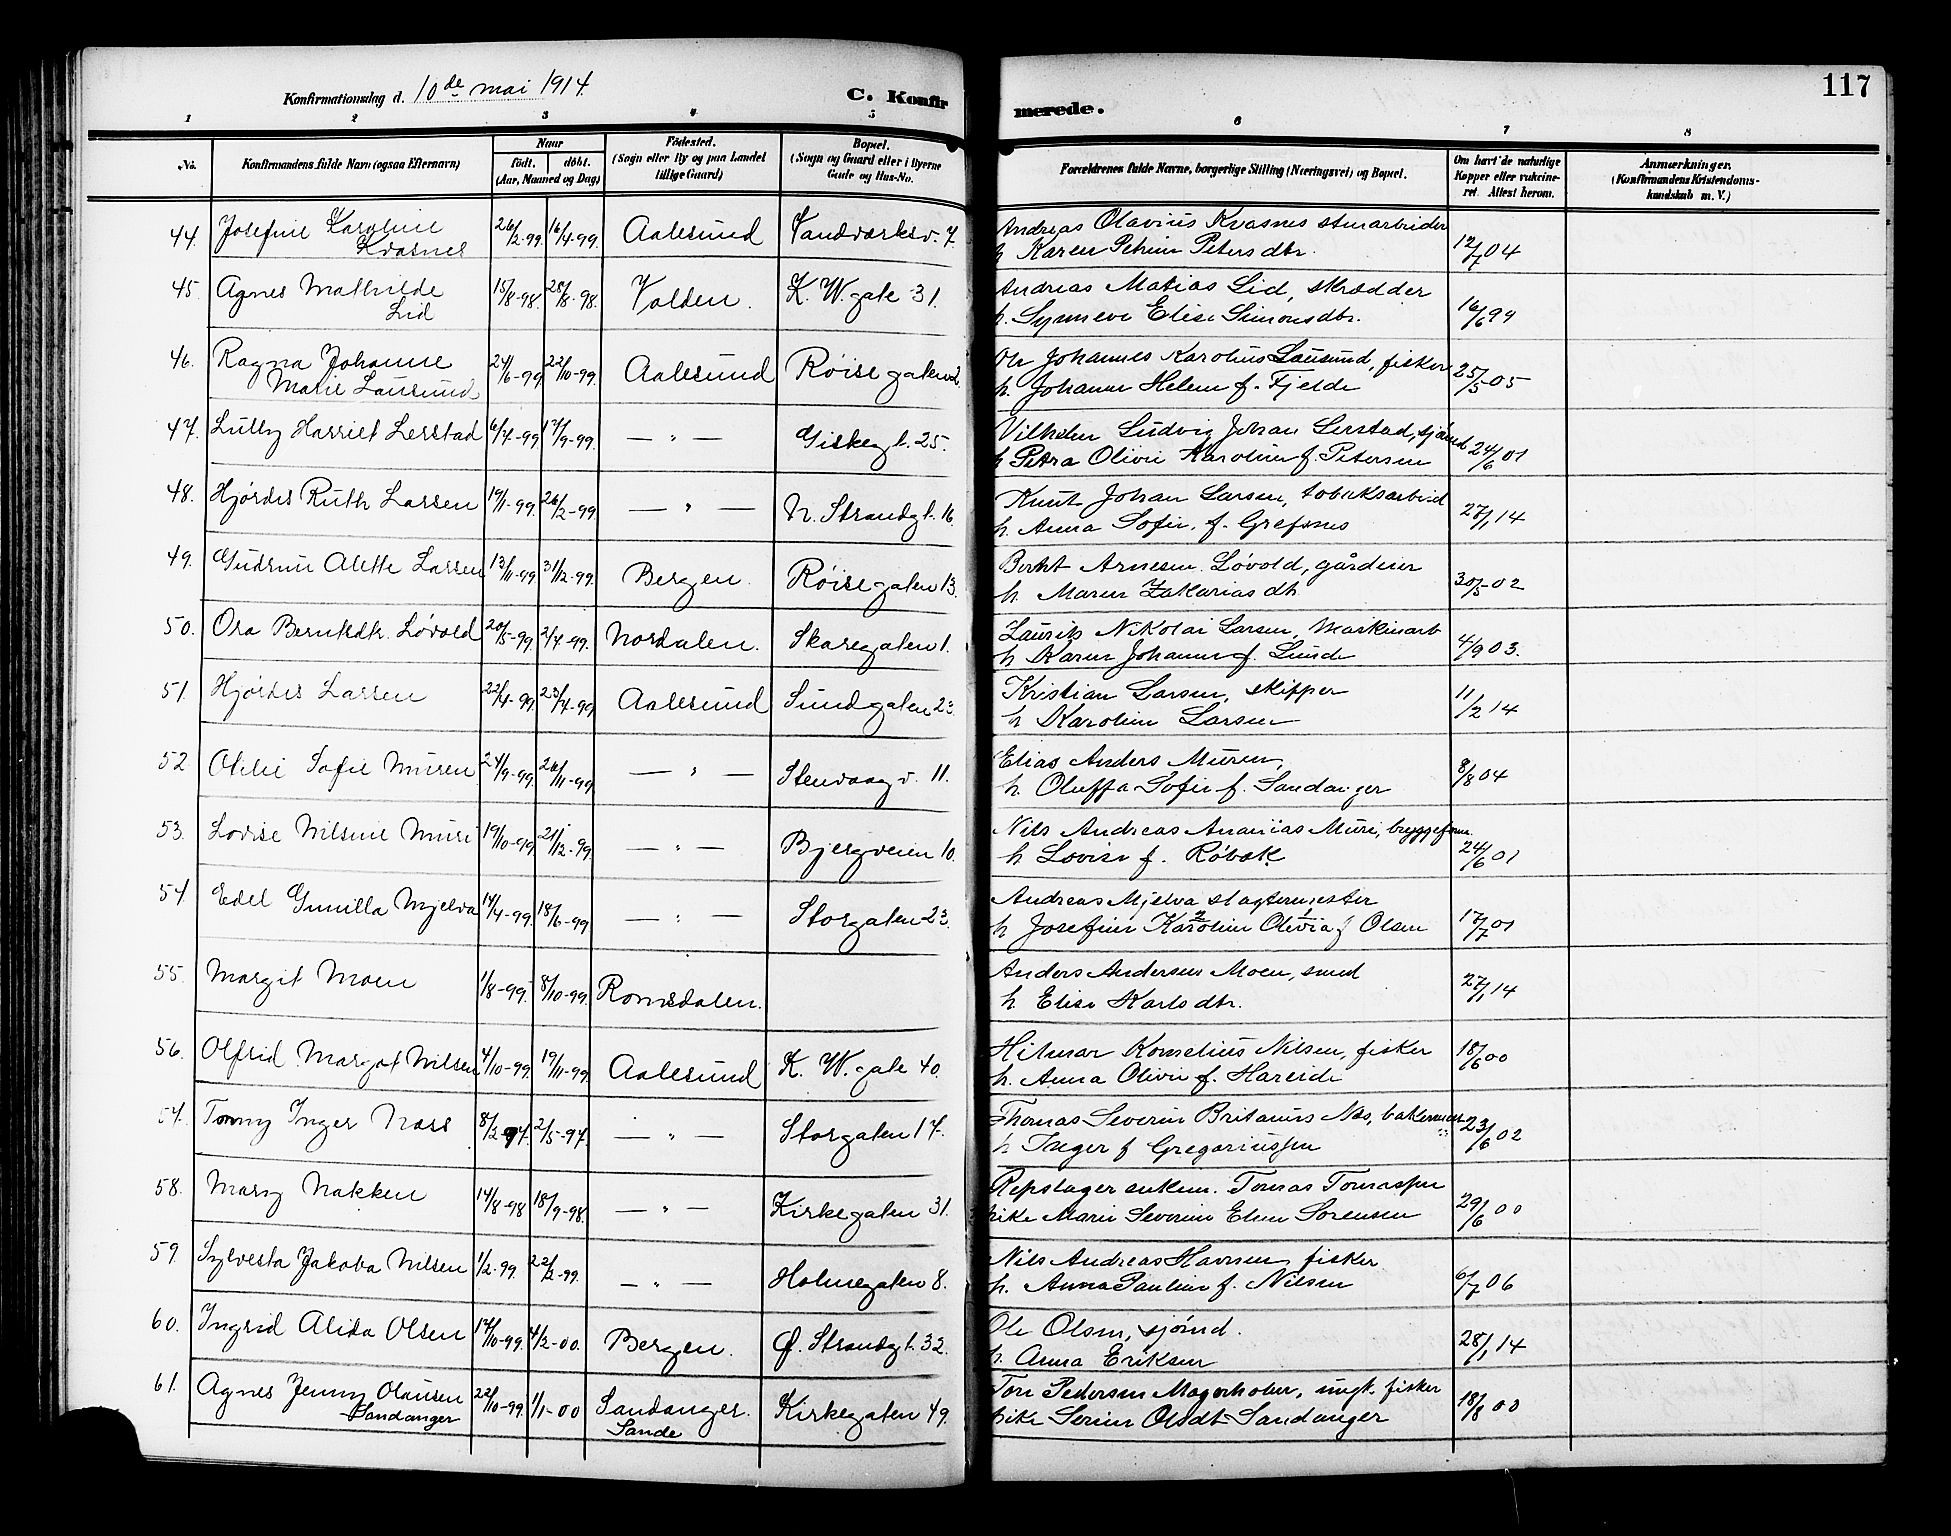 Konfirmationsdag d. 10de mai 1914. C. Konfirmerede. 117
1 2 3 4 5 6 7 8
No. Konfirmandens fulde Navn (ogsaa Efternavn) Naar født. døbt. (Aar, Maaned og Dag) Fødested. (Sogn eller By og paa Landet tillige Gaard) Bopæl. (Sogn og Gaard eller i Byerne Gade og Hus-No. Forældrenes fulde Navne, borgerlige Stilling (Næringsvei) og Bopæl. Om havt de naturlige Kopper eller vaksineret. Attest herom. Anmærkninger. (Konfirmandens Kristendomskundskab m. V.)
44. Josefine Karoline Kvasnes 26/2-99. 16/4-99. Aalesund Vandværksv. 7. Andreas Olavius Kvasnes stuarbeider
h. Karen Petrine Petersdtr. 12/7 04
45. Agnes Mathilde Lid 15/8-98. 28/8-98. Volden. K. W. gate 31. Andreas Matias Lid, skrædder
h. Synneve Elise Simonsdtr. 16/6 99
46. Ragna Johanne Marie Lausund 24/6-99. 22/10-99. Aalesund Røisegaten Ole Johannes Karolius Lausund, fisker
h. Johanne Helene f. Fjelde 25/5 05
47. Lully Harriet Lerstad 6/4-99 17/9-99. — " — Giskegt. 25. Vilhelm Ludvig Johan Lerstad, sjømd
h. Petra Olivie Karoline f. Petersen 24/6 01
48. Hjørdis Ruth Larsen 19/1-99. 26/2-99. — " — N. Strandgt. 16. Knut Johan Larsen, tobaksarbeid
h. Anna Sofie, f. Grefsnes 27/1 14
49. Gudrun Alette Larsen 13/11-99 31/12-99. Bergen. Røisegaten 13. Berht Arnesen Løvold, gårdeier
h. Maren Zakariasdtr 30/5-02
50. Ora Berntsdtr. Løvold 20/5-99. 2/4-99. Nordalen. Skaregaten 1. Laurits Nikolai Larsen, Maskinarb
h. Karen Johanne f. Lunde 4/9 03.
51. Hjørdis Larsen 22/4-99. 23/4-99 Aalesund Sundgaten 23. Kristian Larsen, skipper
h. Karoline Larsen 11/2 14
52 Otelie Sofie Muren 24/9-99. 26/11-99 — " — Stenvaagv. 11. Elias Anders Muren,
h. Oluffa Sofie f. Sandanger 8/8 04
53. Lovise Nilsine Muri 19/10-99. 21/12-99. — " — Bjergveien 10. Nils Andreas Ananias Muri, bryggeform.
h. Lovise f. Røbek 24/6 01
54. Edel Gunilla Mjelva 14/4-99. 18/6-99 — " — Storgaten 23. Andreas Mjelva slagtermester
h. Josefine Karoline 2 Olivia 1 f. Olsen 17/7 01
55. Margit Moen 1/8-99. 8/10-99. Romsdalen. Anders Andersen Moen, smed
h. Elise Karlsdtr. 27/1 14
56. Olfrid Margot Nilsen 4/10-99. 19/11-99. Aalesund K. W. gate 40. Hilmar Kornelius Nilsen, fisker
h. Anna Olivie f. Hareide 18/6 00
57. Tommy Inger Næss 8/2 97. 2/5-97. — " — Storgaten 17. Thomas Severin Britanius Næs, bakermester
h. Inger f. Gregoriussen 23/6 02
58. Mary Nakken 14/8-98 18/9-98. — " — Kirkegaten 31. Repslager enkem. Tomas Tomassen
pike Marie Severine Eline Sørensen 29/6 00
59. Sylvesta Jakoba Nilsen 1/2-99. 22/2-99. — " — Holmegaten 8. Nils Andreas Havnsen, fisker
h. Anna Pauline f. Nilsen 6/7 06
60. Ingrid Alida Olsen 17/10-99. 4/2-00. Bergen. Ø. Strandgt. 32. Ole Olsen, sjømd.
h. Anna Eriksen 28/1 14
61. Agnes Jenny Olausen Sandanger 22/10-99. 1/1-00 Sandanger. Sande Kirkegaten 49. Tore Pedersen Magerholm, ungk. fisker
pike Serine Olsdt Sandanger 18/8 00